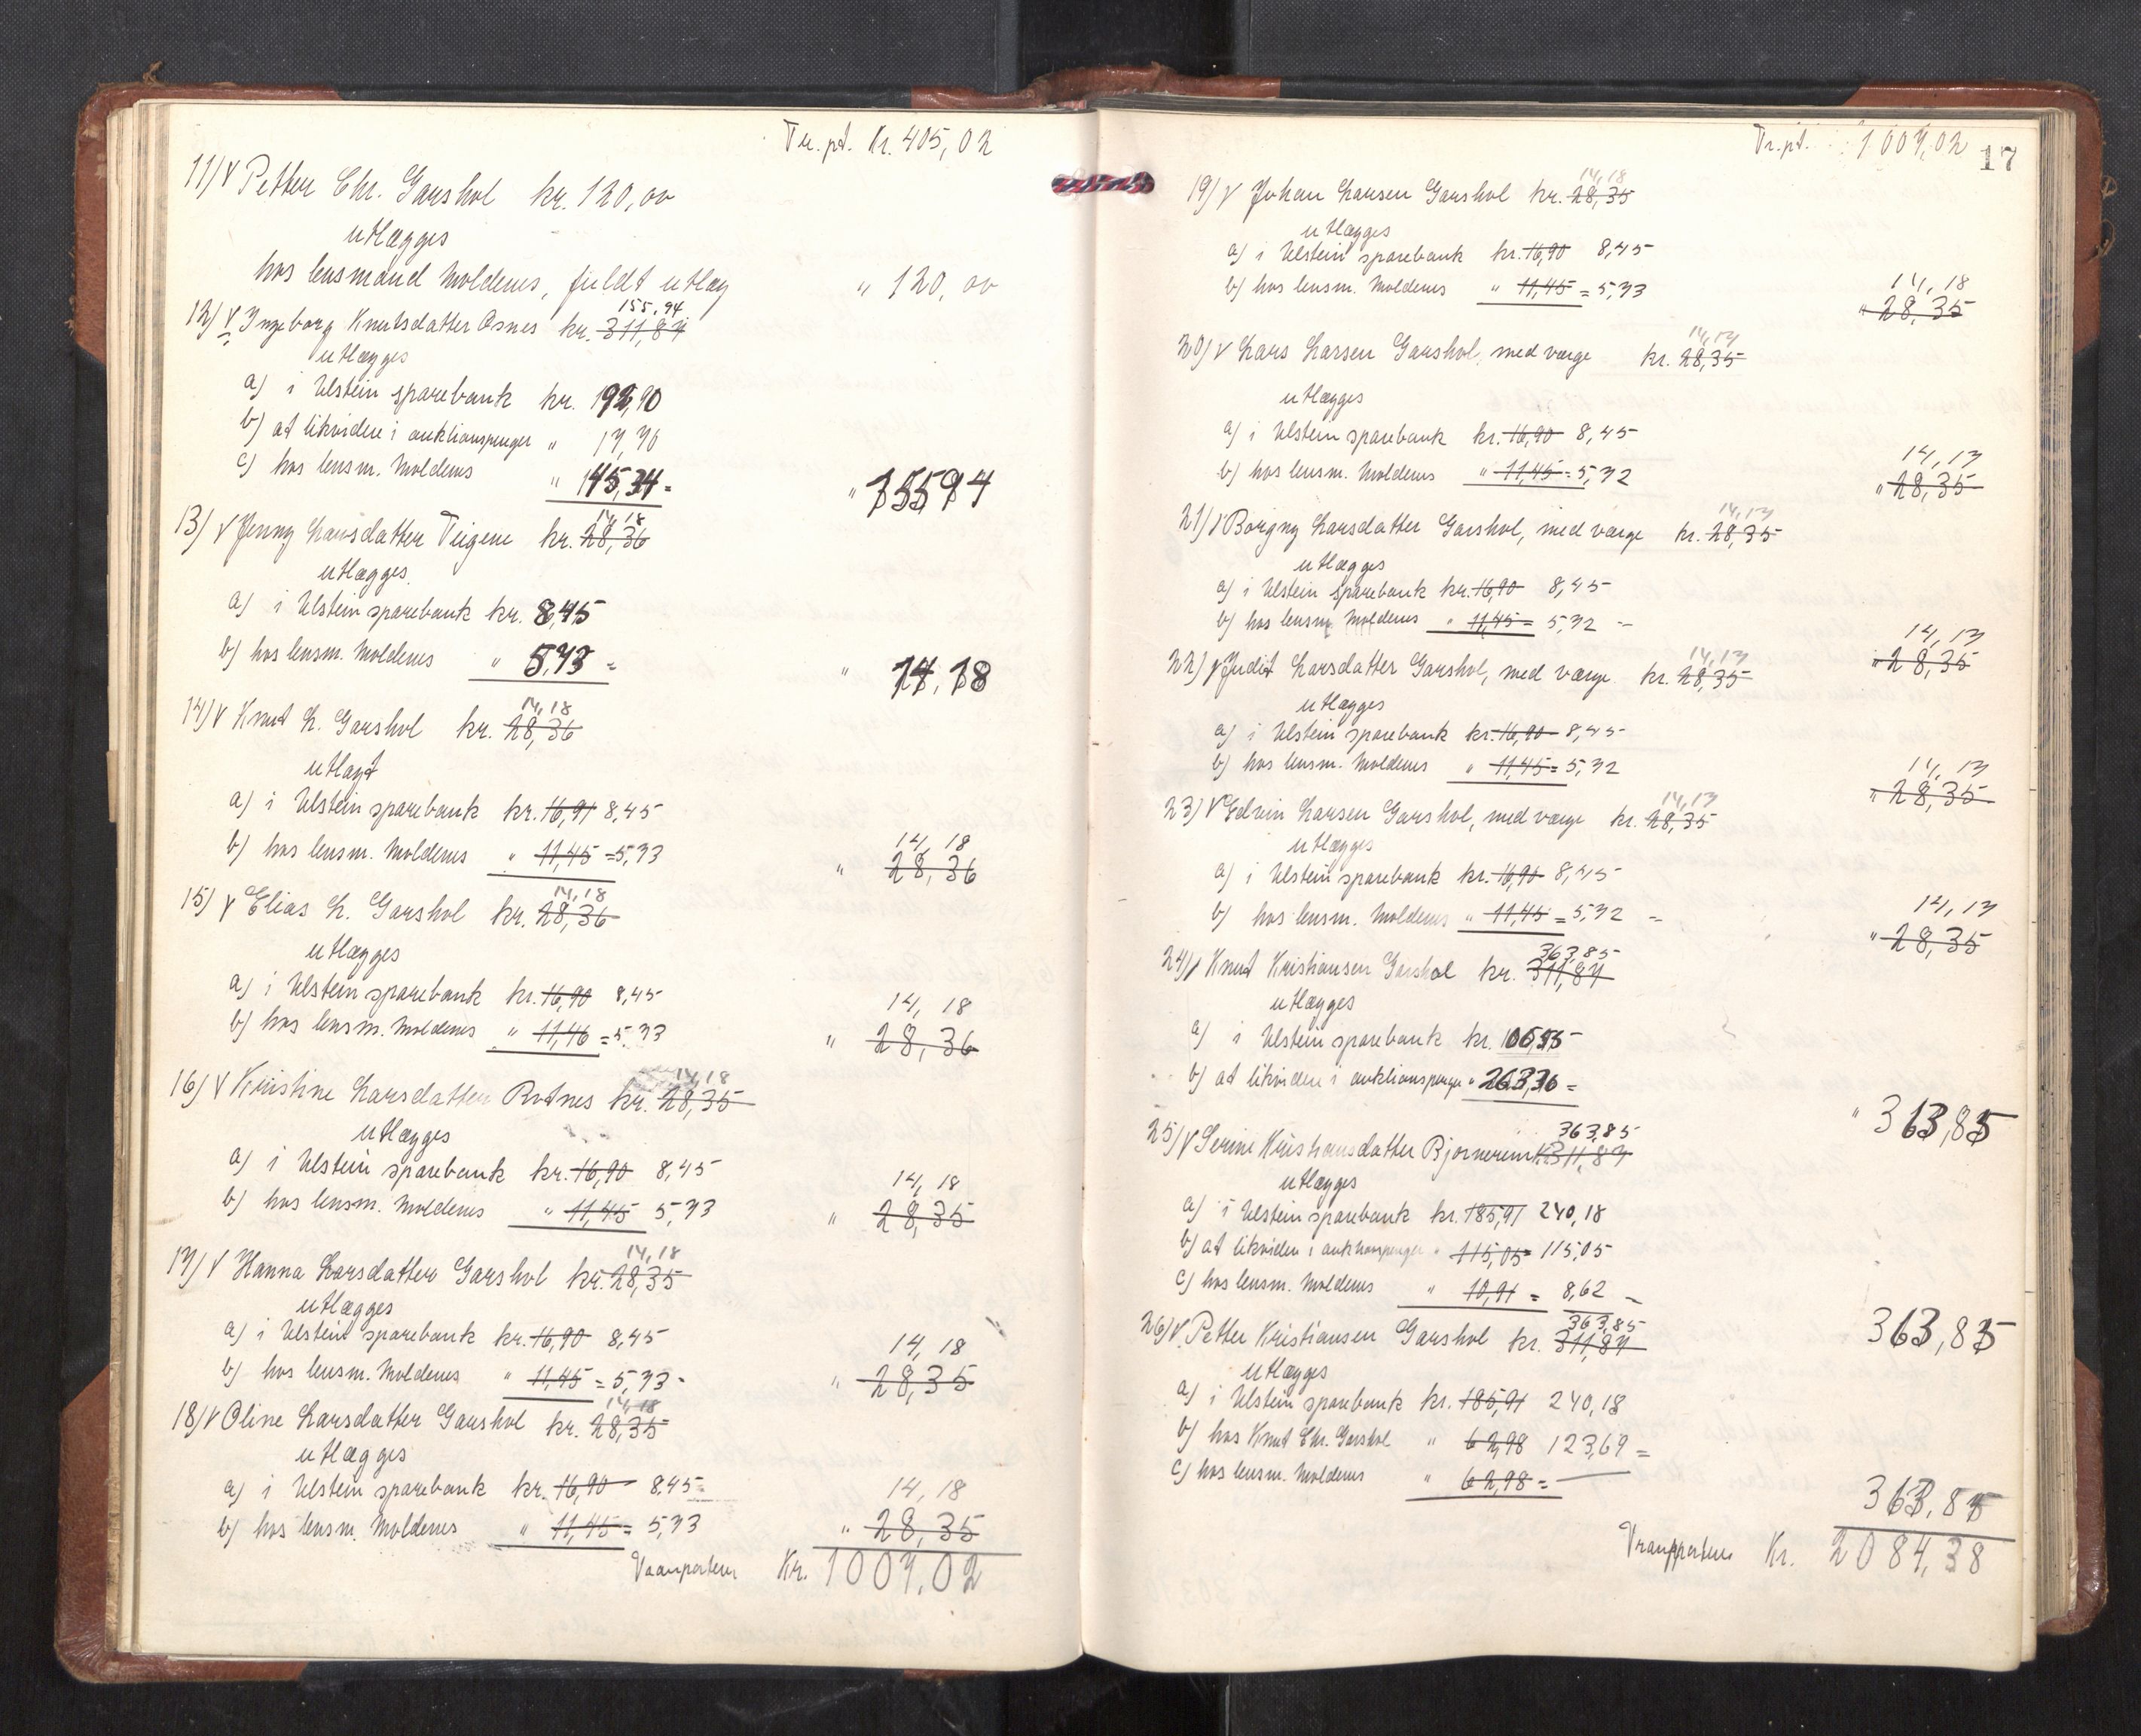 Tr. pt. Kr. 405,02
11/ V Petter Chr. Garshol kr. 120,00
utlægges
hos lensmand Moldenes, fuldt utlæg " 120,00
155,94
12/ V Ingeborg Knutsdatter Osnes kr. 311,87
utlægges
a) i Ulstein sparebank kr.
b) at likvidere i auktionspenger "
c) hos lensm. Moldenes "
14,18
13) V Jenny Larsdatter Teigene kr. 28,36
utlægges
a) i Ulstein sparebank kr. 8,45
b) hos lensm. Moldenes " 5,73 =
" 14,18
14,18
14/ V Knut L. Garshol kr. 28,36
utlagt
a) i Ulstein sparebank kr. 16,91 8,45
b) hos lensm. Moldenes " 11,45 = 5,73
14,18
" 28,36
14,18
15) V Elias L. Garshol kr. 28,36
utlægges
a) i Ulstein sparebank kr. 16,90 8,45
b) hos lensm. Moldenes " 11,46 = 5,73
14,18
" 28,36
14,18
16) V Kristine Larsdatter Rotnes kr. 28,35
utlægges
a) i Ulstein sparebank kr. 16,90 8,45
b) hos lensm. Moldenes " 11,45 5,73
14,18
" 28,35
14,18
17/ V Hanna Larsdatter Garshol kr. 28,35
utlægges
a) i Ulstein sparebank kr. 16,90 8,45
b) hos lensm. Moldenes " 11,45 = 5,73 -
14,18
" 28,35
14,18
18/ V Oline Larsdatter Garshol kr. 28,35
utlægges
a) i Ulstein sparebank kr. 16,90 8,45 =
b) hos lensm. Moldenes " 11,45 = 5,73
14,18
" 28,35
Transporteres Kr. 1007,02
Tr. pt. 1007,02
17
14,18
19/ V Johan Larsen Garshol kr. 28,35
utlægges
a) i Ulstein sparebank kr. 16,90 8,45
b) hos lensm. Moldenes " 11,45 = 5,73
14,18
" 28,35
14,17
20/ V Lars Larsen Garshol, med værge kr. 28,35
utlægges
a) i Ulstein sparebank kr. 16,90 8,45
b) hos lensm. Moldenes " 11,45 = 5,72
14,17
" 28,35
14,17
21/ V Borgny Larsdatter Garshol, med værge kr. 28,35
utlægges
a) i Ulstein sparebank kr. 16,90 8,45
b) hos lensm. Moldenes " 11,45 = 5,72 -
14,17
" 28,35
14,17
22) V Judit Larsdatter Garshol, med værge kr. 28,35
utlægges
a) i Ulstein sparebank kr. 16,90 8,45
b) hos lensm. Moldenes " 11,45 = 5,72
14,17
" 28,35
14,17
23) V Edvin Larsen Garshol, med værge kr. 28,35
utlægges
a) i Ulstein sparebank kr. 16,90 8,45
b) hos lensm. Moldenes " 11,45 = 5,72 =
14,17
" 28,35
363,85
24/ V Knut Kristiansen Garshol kr. 311,87
utlægges
a) i Ulstein sparebank kr.
b) at likvidere i auktionspenger "
" 363,85
363,85
25/ V Serine Kristiansdatter Bjørnerem kr. 311,87
utlægges
a) i Ulstein sparebank kr. 185,91 240,18
b) at likvidere i auktionspenger " 115,05 = 115,05
c) hos lensm. Moldenes " 10,91 = 8,62 =
363,85
363,85
26/ V. Petter Kristiansen Garshol kr. 311,87
utlægges
a) i Ulstein sparebank kr. 185,91 240,18
b) hos Knut Chr. Garshol " 62,98 123,67 =
c) hos lensm. Moldenes " 62,98 =
363,85
Transporteres Kr. 2084,38